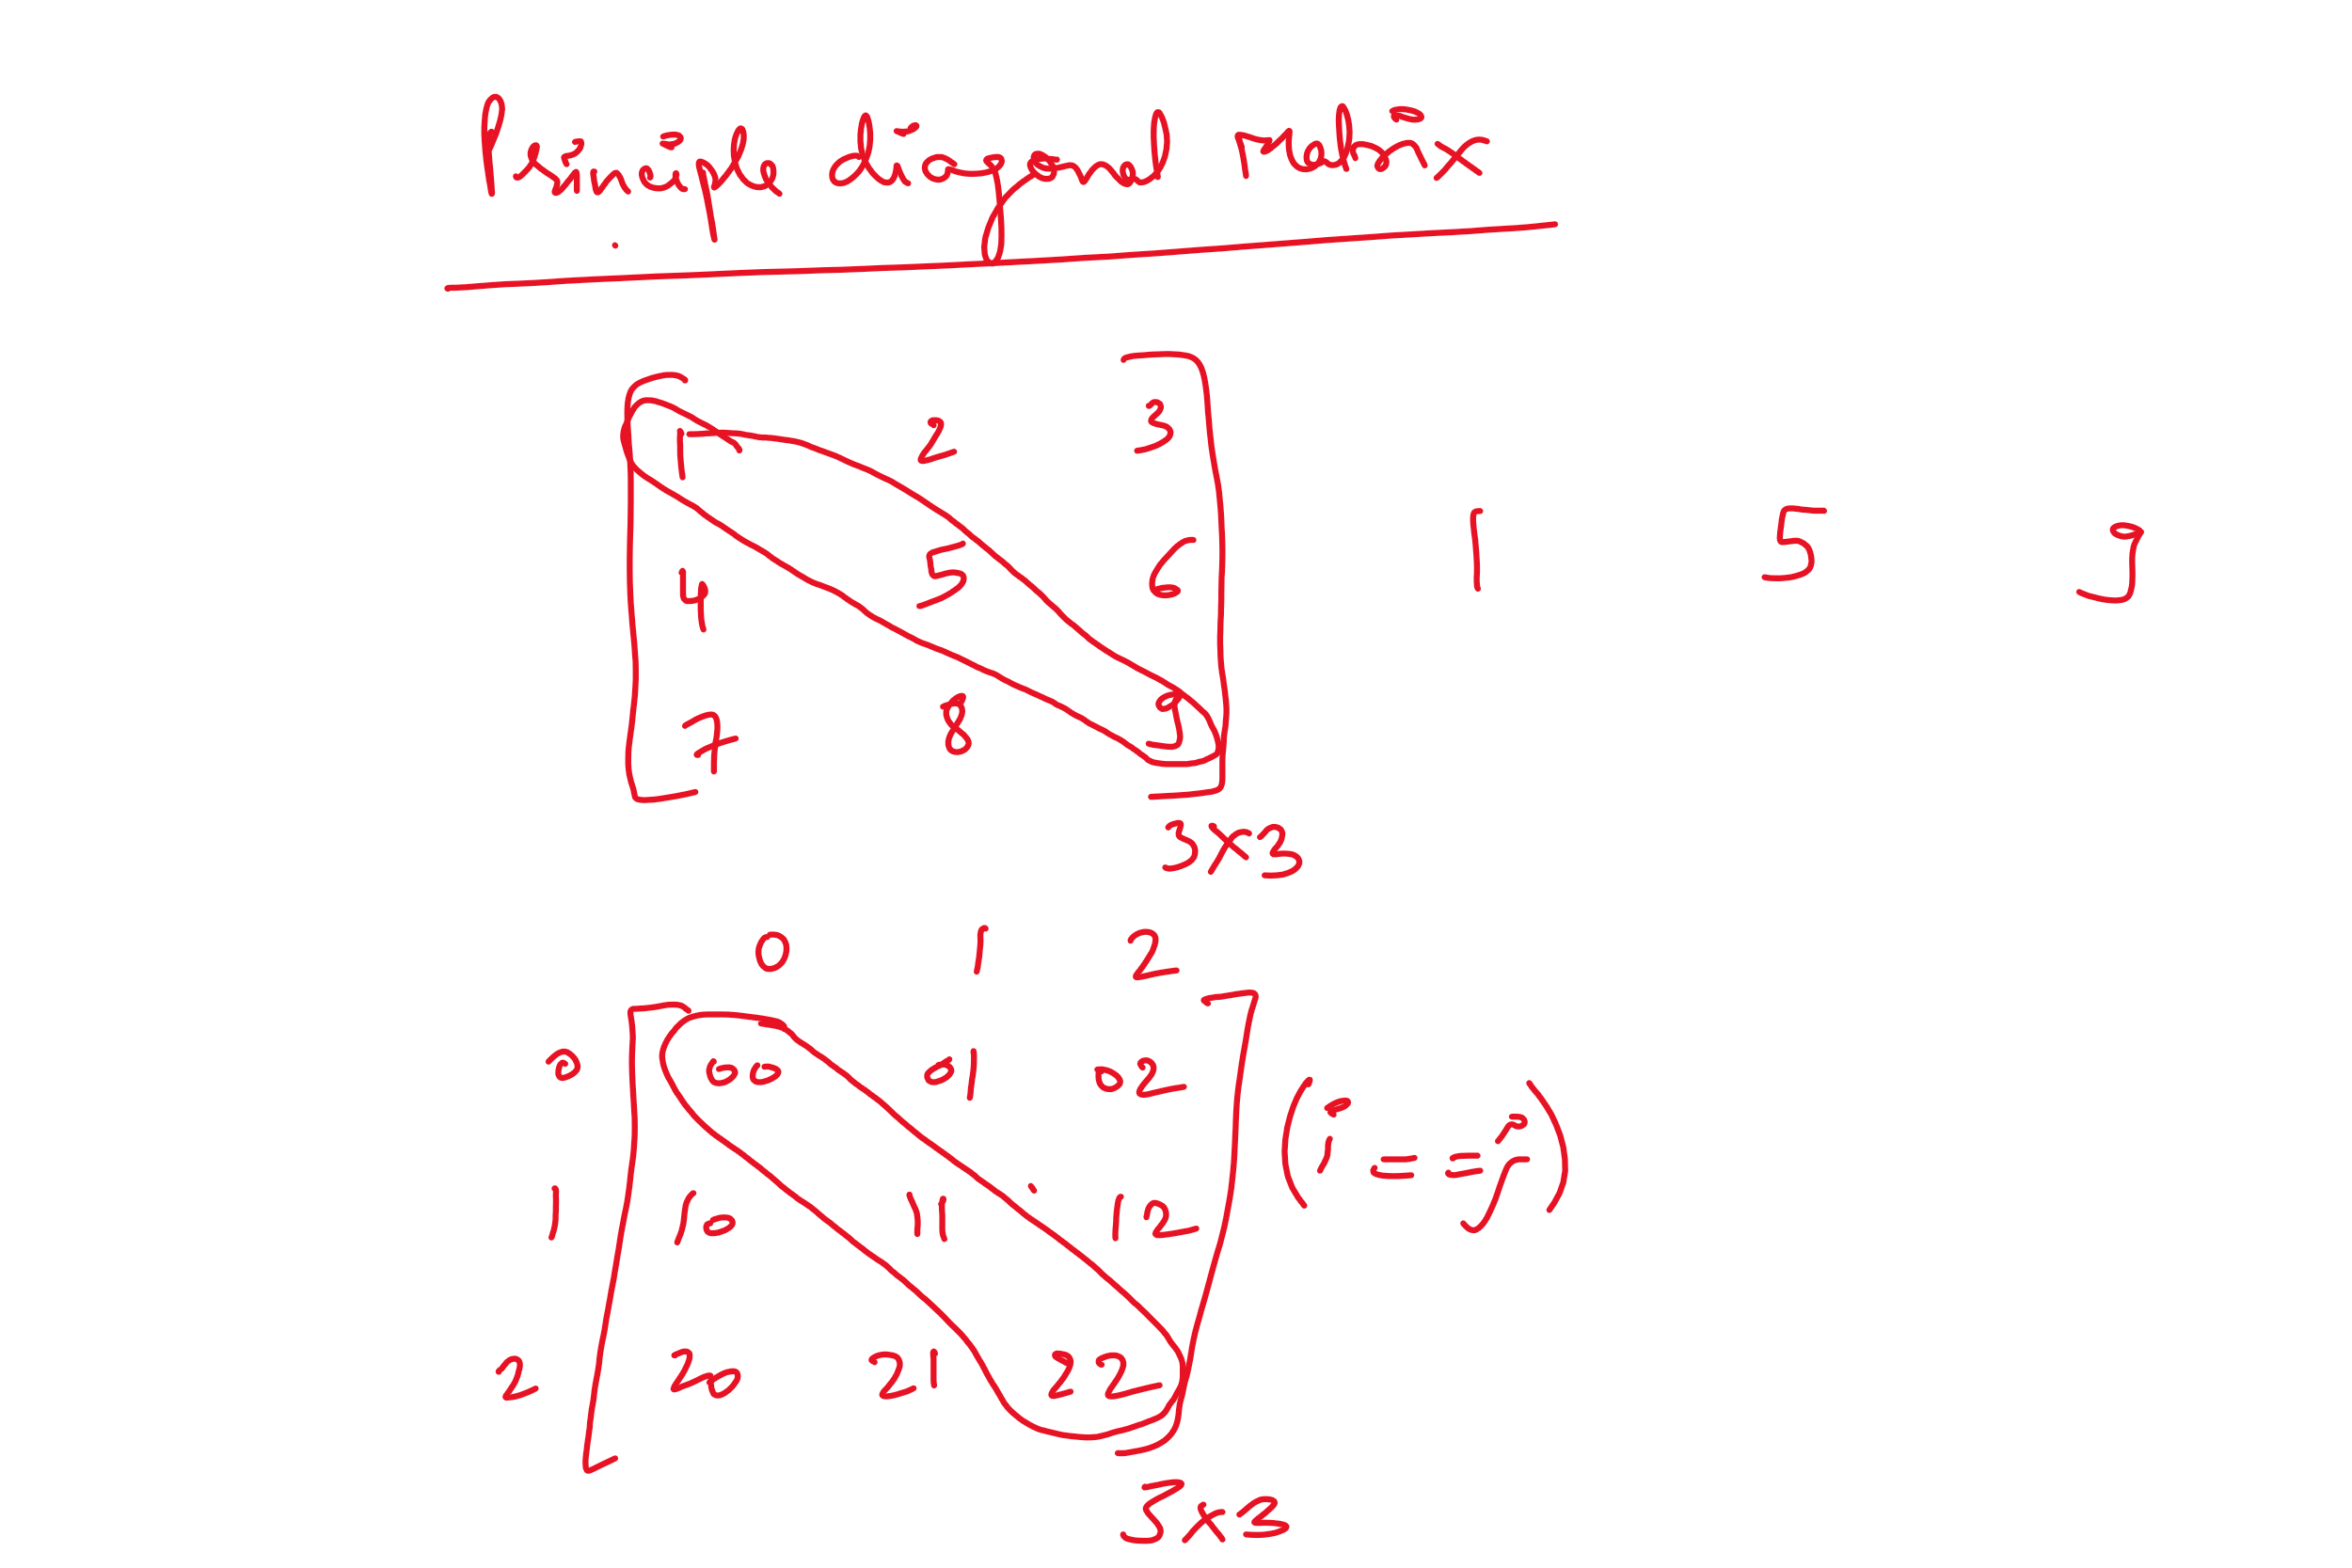 Principle diagonal matrix
1 2 3
4 5 6 1 5 9
7 8 9
3x3
0 1 2
0 00 01 02
1 10 11 12 (i==j)
2 20 21 22
3x3